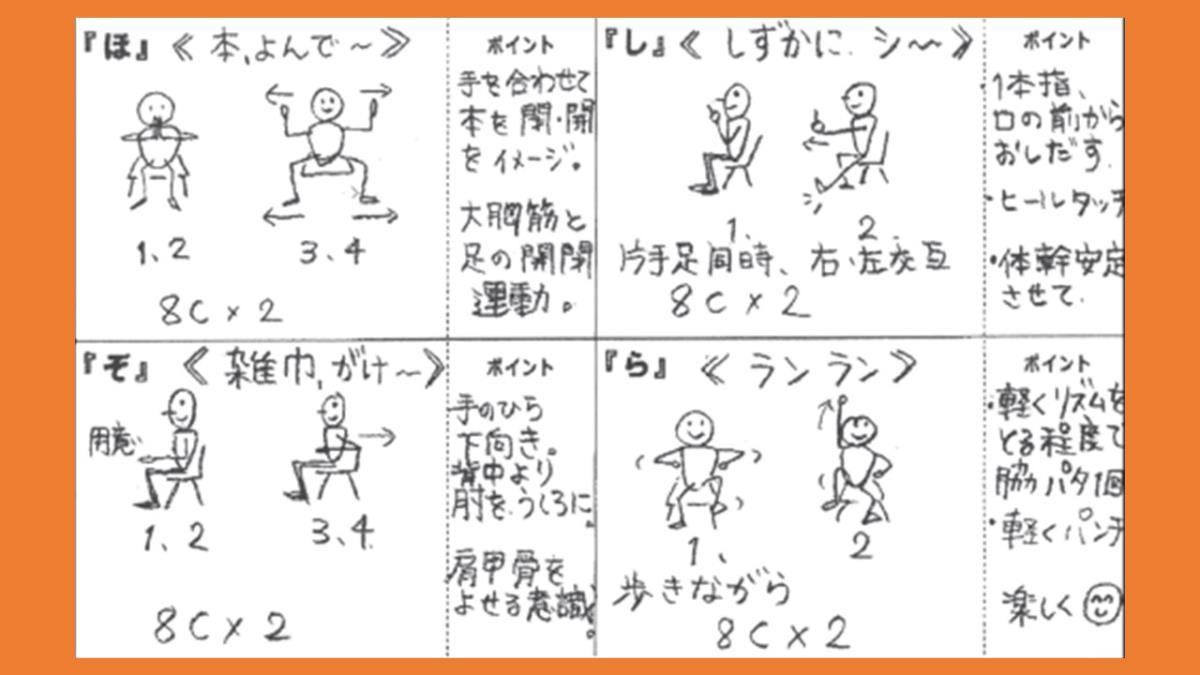 『ほ』《 本,よんで～》
1、2
3、4
8C×2
ポイント
手を合わせて
本を閉・開
をイメージ。
大胸筋と
足の開閉
運動。
『し』《 しずかに. シ～ 》
1.
2.
片手足同時、右・左交互
8C×2
ポイント
・1本指、
口の前から
おしだす.
・ヒールタッチ
・体幹安定
させて.
『ぞ』《 雑巾,がけ～》
用意
1、2
3、4
8C×2
ポイント
手のひら
下向き。
背中より
肘をうしろに。
肩甲骨を
よせる意識。
『ら』《 ラン ラン 》
1、
2
歩きながら
8C×2
ポイント
・軽くリズムを
とる程度で
脇パタ1回
・軽くパンチ
楽しく